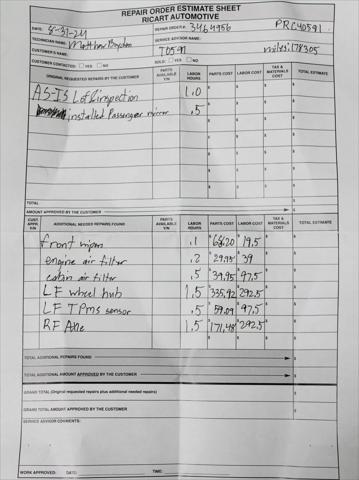 REPAIR ORDER ESTIMATE SHEET
RICART AUTOMOTIVE
DATE: 8-31-24 REPAIR ORDER #: 3464956 PRC40591
TECHNICIAN NAME: Matthew SERVICE ADVISOR NAME:
CUSTOMER'S NAME: T0591 miles: 178305
CUSTOMER CONTACTED: YES NO SOLD: YES NO
ORIGINAL REQUESTED REPAIRS BY THE CUSTOMER PARTS AVAILABLE Y/N LABOR HOURS PARTS COST LABOR COST TAX & MATERIALS COST TOTAL ESTIMATE
AS-IS Lof & inspection 1.0 $ $ $ $
installed Passenger mirror .5 $ $ $ $
TOTAL
AMOUNT APPROVED BY THE CUSTOMER
CUST. APPR. Y/N ADDITIONAL NEEDED REPAIRS FOUND PARTS AVAILABLE Y/N LABOR HOURS PARTS COST LABOR COST TAX & MATERIALS COST TOTAL ESTIMATE
front wipers .1 $68.20 $19.5
engine air filter .2 $29.95 $39
cabin air filter .5 $39.95 $97.5
LF wheel hub 1.5 $335.92 $292.5
LF TPms sensor .5 $59.09 $97.5
RF Axle 1.5 $171.48 $292.5
TOTAL ADDITIONAL REPAIRS FOUND $
TOTAL ADDITIONAL AMOUNT APPROVED BY THE CUSTOMER $
GRAND TOTAL (Original requested repairs plus additional needed repairs) $
GRAND TOTAL AMOUNT APPROVED BY THE CUSTOMER $
SERVICE ADVISOR COMMENTS:
WORK APPROVED: DATE: TIME: